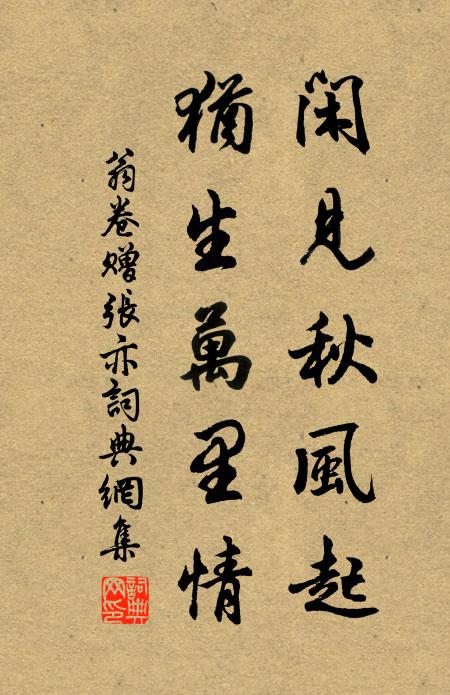 閑見秋風起
猶生萬里情
翁卷贈張亦詞典網集
詞典網印